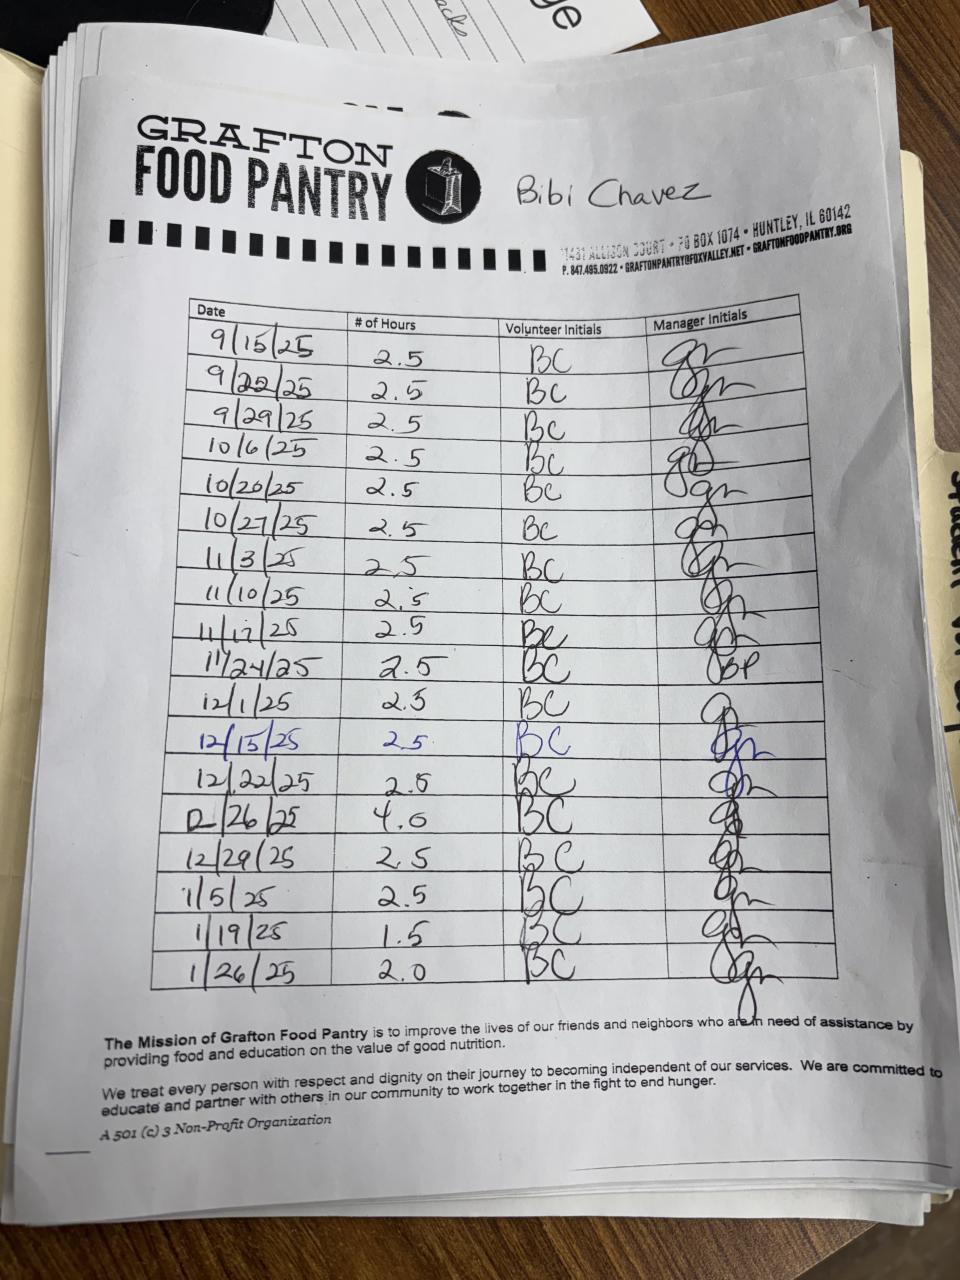 acks
ge
GRAFTON
FOOD PANTRY
Bibi Chavez
11431 ALLISON COURT • PO BOX 1074 • HUNTLEY, IL 60142
P. 847.495.0922 • GRAFTONPANTRY@FOXVALLEY.NET • GRAFTONFOODPANTRY.ORG
Date # of Hours Volunteer Initials Manager Initials
9/15/25 2.5 BC
9/22/25 2.5 BC
9/29/25 2.5 BC
10/6/25 2.5 BC
10/20/25 2.5 BC
10/27/25 2.5 BC
11/3/25 2.5 BC
11/10/25 2.5 BC
11/17/25 2.5 BC
11/24/25 2.5 BC BP
12/1/25 2.5 BC
12/15/25 2.5 BC
12/22/25 BC
12/26/25 4.0 BC
12/29/25 2.5 BC
1/5/25 2.5 BC
1/19/25 1.5 BC
1/26/25 2.0 BC
The Mission of Grafton Food Pantry is to improve the lives of our friends and neighbors who are in need of assistance by
providing food and education on the value of good nutrition.
We treat every person with respect and dignity on their journey to becoming independent of our services. We are committed to
educate and partner with others in our community to work together in the fight to end hunger.
A 501 (c) 3 Non-Profit Organization